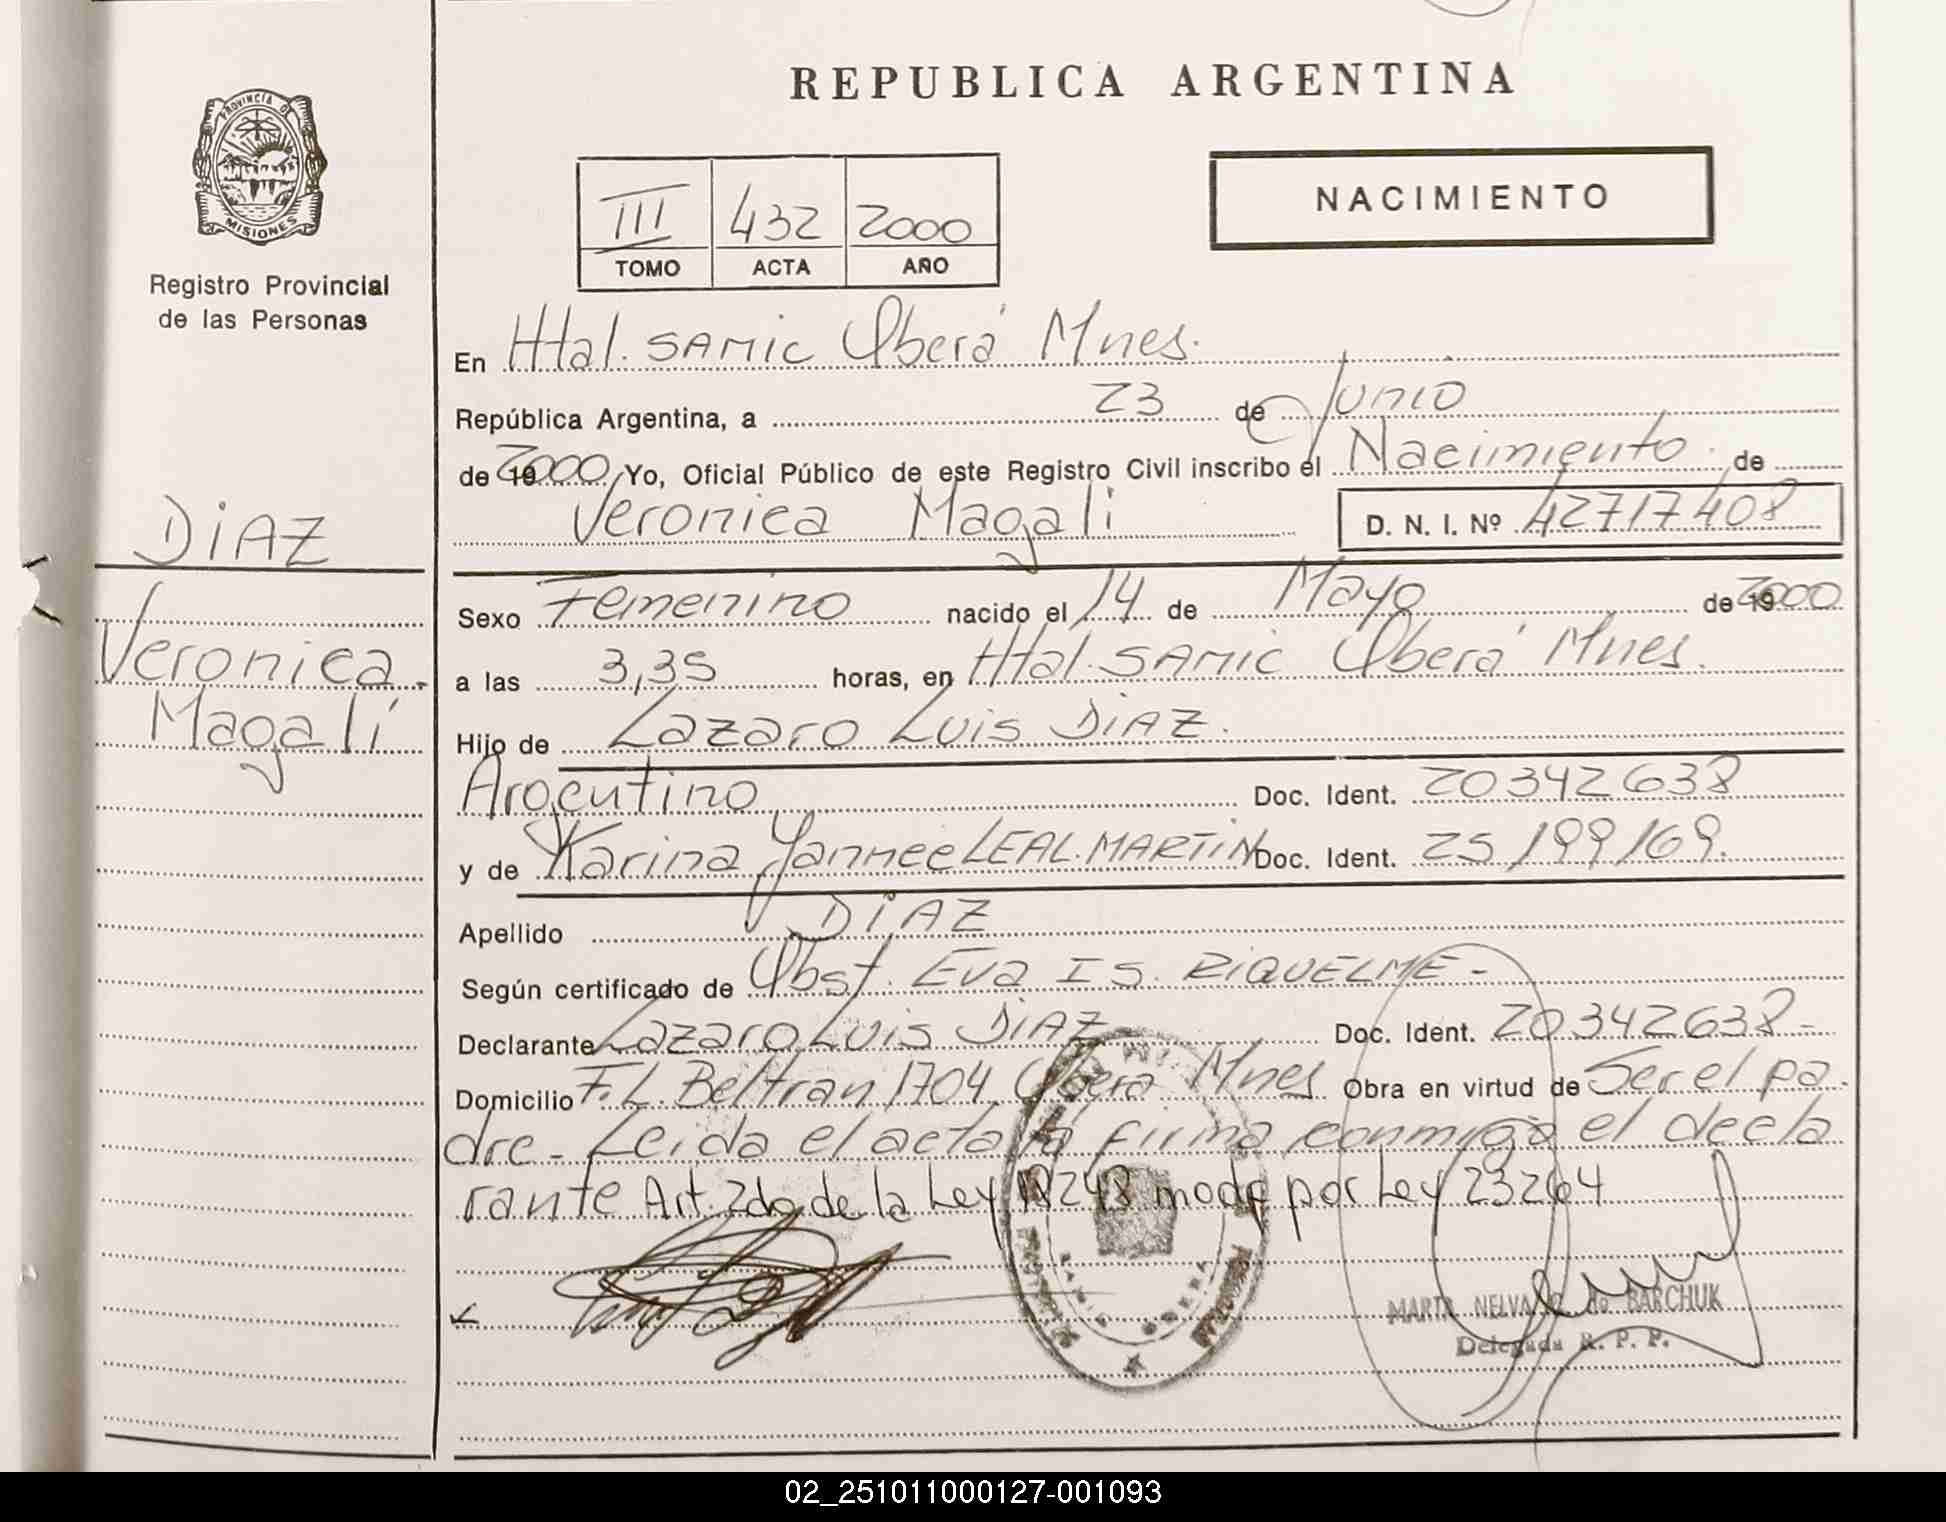 REPUBLICA ARGENTINA
PROVINCIA DE
MISIONES
Registro Provincial
de las Personas
III 432 2000
TOMO ACTA AÑO
NACIMIENTO
En Htal. SAMIC Oberá Mnes.
República Argentina, a 23 de Junio
de 2000 Yo, Oficial Público de este Registro Civil inscribo el Nacimiento de
Veronica Magali D. N. I. Nº 42717408
DiAZ
Veronica
Magali
Sexo Femenino nacido el 14 de Mayo de 2000
a las 3,35 horas, en Htal. SAMIC Oberá Mnes.
Hijo de Lazaro Luis DiAZ.
Argentino Doc. Ident. 20342638
y de Karina Yannee LEAL MARTiN Doc. Ident. 25199169.
Apellido DiAZ
Según certificado de Obst. Eva IS. RiQUELME-
Declarante Lazaro Luis DiAZ Doc. Ident. 20342638-
Domicilio F. L. Beltran 1704 Oberá Mnes Obra en virtud de Ser el pa-
dre - Leida el acta la firma conmigo el decla
rante Art. 2do de la Ley 18248 modf por Ley 23264
BARCHUK
Delegada R. P. P.
02_251011000127-001093